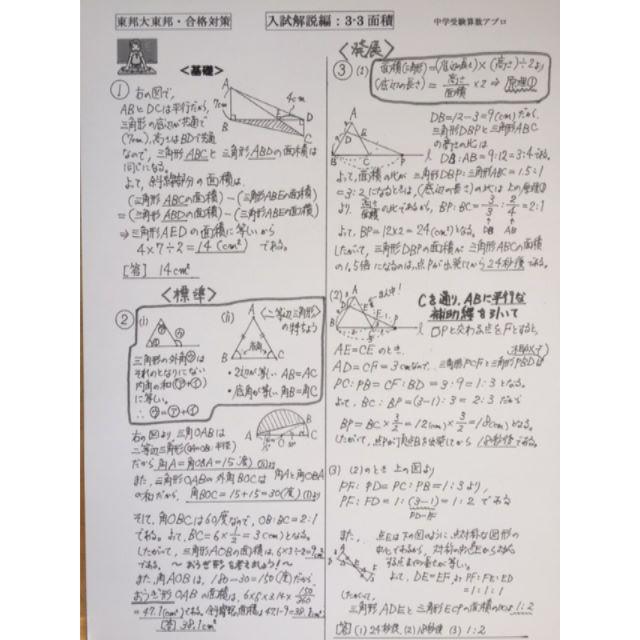 東邦大東邦・合格対策
入試解説編：3-3 面積
中学受験算数アプロ
＜基礎＞
① 右の図で、
ABとDCは平行だから、
三角形の底辺が共通で
(7cm)、高さもBDで共通
なので、三角形ABCと三角形ABDの面積は
同じになる。
よって、斜線部分の面積は、
(三角形ABCの面積)－(三角形ABEの面積)
＝(三角形ABDの面積)－(三角形ABEの面積)
⇒三角形AEDの面積に等しいから
4×7÷2＝14(cm²) である。
[答] 14cm²
＜標準＞
② (i)
三角形の外角㋒は
それのとなりにない
内角の和(㋐+㋑)
に等しい。
∴ ㋒＝㋐+㋑
(ii) ＜二等辺三角形＞
の特ちょう
・2辺が等しい AB=AC
・底角が等しい 角B=角C
右の図より、三角OABは
二等辺三角形(OA=OB:半径)
だから 角A=角OBA=15(度)
また、三角形OABの外角BOCは 角Aと角OBA
の和だから、角BOC=15+15=30(度)
そして、角OBCは60度なので、OB:BC=2:1
である。よって、BC=6×1/2=3(cm)となる。
したがって、三角形AOBの面積は、6×3÷2=9cm²
である。 ～おうぎ形を考えましょう！～
また、角AOBは、180-30=150(度)だから、
おうぎ形OABの面積は、6×6×3.14×150/360
=47.1(cm²)である。 47.1-9=38.1cm²
[答] 38.1cm²
＜発展＞
③ (1)
面積(三角形)=(底辺の長さ)×(高さ)÷2より
(底辺の長さ)=面積/高さ×2 ⇒ 原理①
DB=12-3=9(cm)だから、
三角形DBPと三角形ABC
の高さの比は
DB:AB=9:12=3:4である。
よって、面積の比が 三角形DBP:三角形ABC=1.5:1
=3:2になるときは、(底辺の長さ)の比は上の原理①
より 面積/高さの比であるから、BP:BC=3/3:2/4=2:1
DB AB
よって、BP=12×2=24(cm)となる。
したがって、三角形DBPの面積が三角形ABCの面積
の1.5倍になるのは、点Pが出発してから24秒後である。
(2)
Cを通り、ABに平行な
補助線を引いて
DPと交わる点をFとすると、
AE=CEのとき、
AD=CF=3cmなので、三角形PCFと三角形PBDは
PC:PB=CF:BD=3:9=1:3となる。
よって、BC:BP=(3-1):3=2:3だから
BP=BC×3/2=12(cm)×3/2=18(cm)となる。
したがって、点Pが点Bを出発してから 18秒後である。
(3) (2)のとき 上の図より
PF:PD=PC:PB=1:3より、
PF:FD=1:(3-1)=1:2である
PD-PF
また、点Eは下の図のように、点対称な図形の
よって、DE=EFよりPF:FE:ED
=1:1:1
したがって、
三角形ADEと三角形ECPの面積の比は 1:2
[答] (1) 24秒後、(2) 18秒後 (3) 1:2